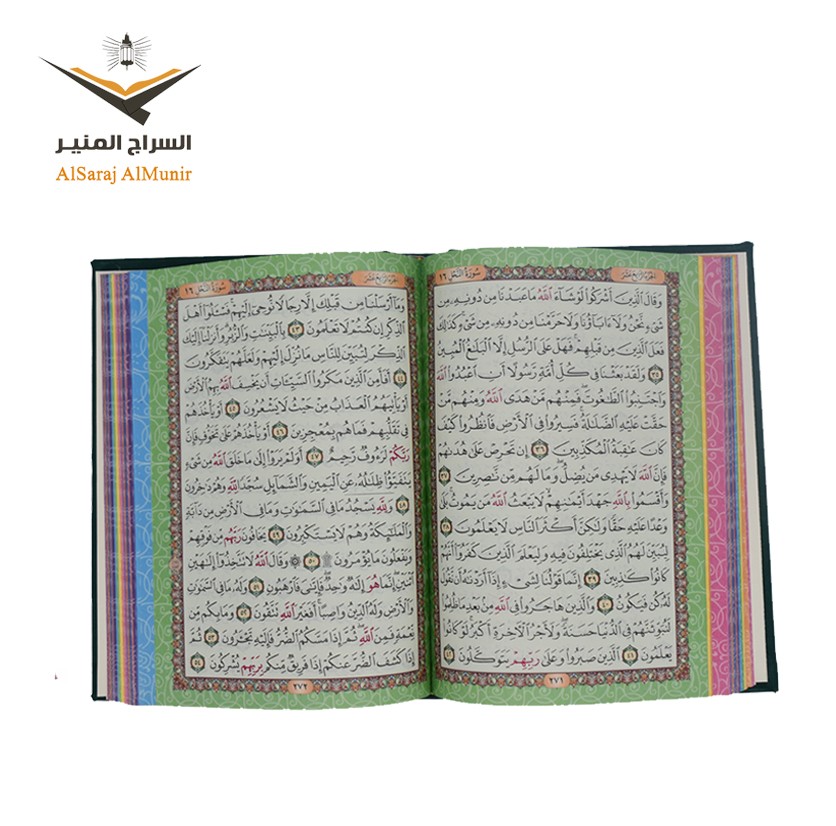 السراج المنير
AlSaraj AlMunir
الجزء الرابع عشر
سورة النحل ١٦
وَقَالَ الَّذِينَ أَشْرَكُوا لَوْ شَاءَ اللَّهُ مَا عَبَدْنَا مِن دُونِهِ مِن
شَيْءٍ نَّحْنُ وَلَا ءَابَاؤُنَا وَلَا حَرَّمْنَا مِن دُونِهِ مِن شَيْءٍ كَذَٰلِكَ
فَعَلَ الَّذِينَ مِن قَبْلِهِمْ فَهَلْ عَلَى الرُّسُلِ إِلَّا الْبَلَٰغُ الْمُبِينُ
٣٥ وَلَقَدْ بَعَثْنَا فِي كُلِّ أُمَّةٍ رَّسُولًا أَنِ اعْبُدُوا اللَّهَ
وَاجْتَنِبُوا الطَّٰغُوتَ فَمِنْهُم مَّنْ هَدَى اللَّهُ وَمِنْهُم مَّنْ
حَقَّتْ عَلَيْهِ الضَّلَٰلَةُ فَسِيرُوا فِي الْأَرْضِ فَانظُرُوا كَيْفَ
كَانَ عَٰقِبَةُ الْمُكَذِّبِينَ ٣٦ إِن تَحْرِصْ عَلَىٰ هُدَىٰهُمْ
فَإِنَّ اللَّهَ لَا يَهْدِي مَن يُضِلُّ وَمَا لَهُم مِّن نَّٰصِرِينَ ٣٧
وَأَقْسَمُوا بِاللَّهِ جَهْدَ أَيْمَٰنِهِمْ لَا يَبْعَثُ اللَّهُ مَن يَمُوتُ بَلَىٰ
وَعْدًا عَلَيْهِ حَقًّا وَلَٰكِنَّ أَكْثَرَ النَّاسِ لَا يَعْلَمُونَ ٣٨
لِيُبَيِّنَ لَهُمُ الَّذِي يَخْتَلِفُونَ فِيهِ وَلِيَعْلَمَ الَّذِينَ كَفَرُوا أَنَّهُمْ
كَانُوا كَٰذِبِينَ ٣٩ إِنَّمَا قَوْلُنَا لِشَيْءٍ إِذَا أَرَدْنَٰهُ أَن نَّقُولَ
لَهُ كُن فَيَكُونُ ٤٠ وَالَّذِينَ هَاجَرُوا فِي اللَّهِ مِن بَعْدِ مَا ظُلِمُوا
لَنُبَوِّئَنَّهُمْ فِي الدُّنْيَا حَسَنَةً وَلَأَجْرُ الْءَاخِرَةِ أَكْبَرُ لَوْ كَانُوا
يَعْلَمُونَ ٤١ الَّذِينَ صَبَرُوا وَعَلَىٰ رَبِّهِمْ يَتَوَكَّلُونَ ٤٢
٢٧١
الجزء الرابع عشر
سورة النحل ١٦
وَمَا أَرْسَلْنَا مِن قَبْلِكَ إِلَّا رِجَالًا نُّوحِي إِلَيْهِمْ فَسْـَٔلُوا أَهْلَ
الذِّكْرِ إِن كُنتُمْ لَا تَعْلَمُونَ ٤٣ بِالْبَيِّنَٰتِ وَالزُّبُرِ وَأَنزَلْنَا إِلَيْكَ
الذِّكْرَ لِتُبَيِّنَ لِلنَّاسِ مَا نُزِّلَ إِلَيْهِمْ وَلَعَلَّهُمْ يَتَفَكَّرُونَ
٤٤ أَفَأَمِنَ الَّذِينَ مَكَرُوا السَّيِّـَٔاتِ أَن يَخْسِفَ اللَّهُ بِهِمُ الْأَرْضَ
أَوْ يَأْتِيَهُمُ الْعَذَابُ مِنْ حَيْثُ لَا يَشْعُرُونَ ٤٥ أَوْ يَأْخُذَهُمْ
فِي تَقَلُّبِهِمْ فَمَا هُم بِمُعْجِزِينَ ٤٦ أَوْ يَأْخُذَهُمْ عَلَىٰ تَخَوُّفٍ فَإِنَّ
رَبَّكُمْ لَرَءُوفٌ رَّحِيمٌ ٤٧ أَوَلَمْ يَرَوْا إِلَىٰ مَا خَلَقَ اللَّهُ مِن شَيْءٍ
يَتَفَيَّؤُا ظِلَٰلُهُ عَنِ الْيَمِينِ وَالشَّمَائِلِ سُجَّدًا لِّلَّهِ وَهُمْ دَٰخِرُونَ
٤٨ وَلِلَّهِ يَسْجُدُ مَا فِي السَّمَٰوَٰتِ وَمَا فِي الْأَرْضِ مِن دَابَّةٍ
وَالْمَلَٰئِكَةُ وَهُمْ لَا يَسْتَكْبِرُونَ ٤٩ يَخَافُونَ رَبَّهُم مِّن فَوْقِهِمْ
وَيَفْعَلُونَ مَا يُؤْمَرُونَ ۩ ٥٠ ۞ وَقَالَ اللَّهُ لَا تَتَّخِذُوا إِلَٰهَيْنِ
اثْنَيْنِ إِنَّمَا هُوَ إِلَٰهٌ وَٰحِدٌ فَإِيَّٰيَ فَارْهَبُونِ ٥١ وَلَهُ مَا فِي السَّمَٰوَٰتِ
وَالْأَرْضِ وَلَهُ الدِّينُ وَاصِبًا أَفَغَيْرَ اللَّهِ تَتَّقُونَ ٥٢ وَمَا بِكُم مِّن
نِّعْمَةٍ فَمِنَ اللَّهِ ثُمَّ إِذَا مَسَّكُمُ الضُّرُّ فَإِلَيْهِ تَجْـَٔرُونَ ٥٣ ثُمَّ
إِذَا كَشَفَ الضُّرَّ عَنكُمْ إِذَا فَرِيقٌ مِّنكُم بِرَبِّهِمْ يُشْرِكُونَ ٥٤
٢٧٢